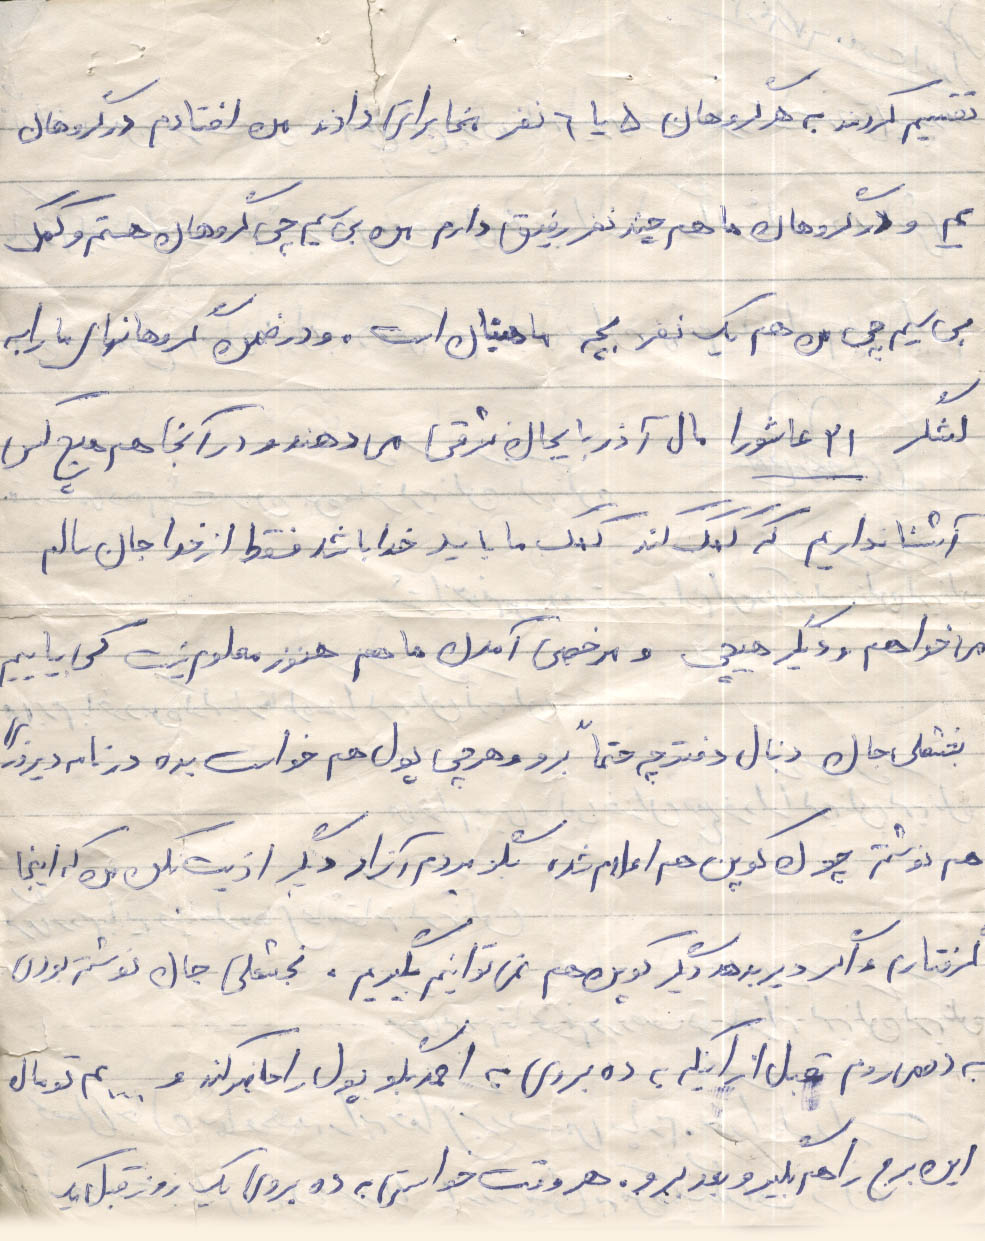 تقسیم کردند به هر گروهان ۵ یا ٦ نفر بخابرای دادند من افتادم در گروهان
یم و در گروهان ما هم چند نفر رفیق دارم من بی سیم چی گروهان هستم و کمک
بی سیم چی من هم یک نفر بچه ماهیان است. و در ضمن گروهانهای ما را به
لشگر ۳۱ عاشورا مال آذربایجان شرقی می دهند و در آنجا هم هیچ کس
آشنا نداریم که کمک کند کمک ما باید خدا باشد فقط از خدا جان سالم
می خواهم و دیگر هیچی و مرخصی آمدن ما هم هنوز معلوم نیست کی بیاییم
نجفعلی جان دنبال دفترچه حتماً برو و هر چی پول هم خواست بده در نامه دیروز
هم نوشته چون کوپن هم اعلام شده بگو مردم آزار دیگر اذیت نکن من که اینجا
گرفتارم و اگر دیر بدهد دیگر کوپن هم نمی توانیم بگیریم. نجفعلی جان نوشته بودی
به ده می روم قبل از اینکه به ده بروی به احمد بگو پول را حاضر کند و ... تو مال
این برج را هم بگیر و بعد برو. هر وقت خواستی به ده بروی یک روز قبل